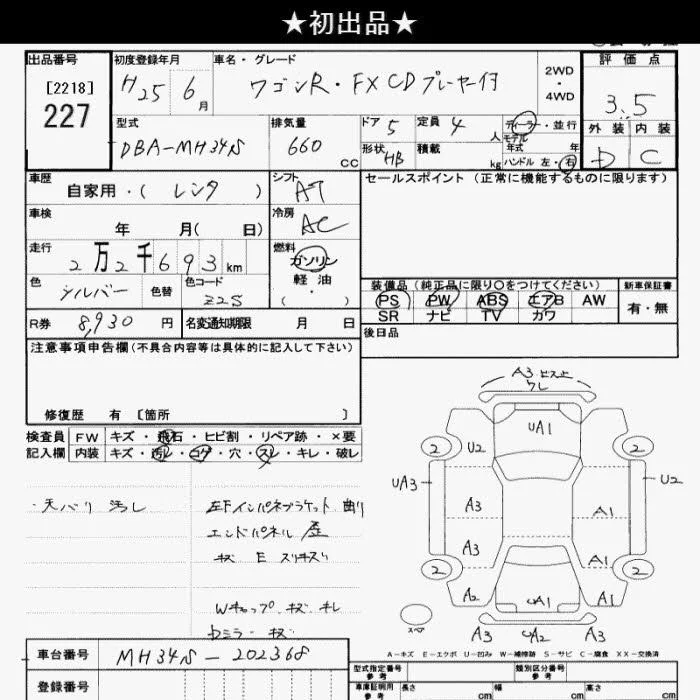 ★初出品★
出品番号 初度登録年月 車名・グレード 2WD・4WD 評価点
[2218]
227
H25 6月 ワゴンR・FX CDプレーヤー付 3.5
型式 排気量 ドア 5 定員 4人 ディーラー・並行 外装 内装
モデル年式 年
DBA-MH34S 660cc 形状 HB 積載 kg ハンドル 左・右 D C
車歴 シフト セールスポイント (正常に機能するものに限ります)
自家用・( レンタ ) AT
車検 冷房
年 月( 日) AC
走行 燃料
2万2千693km ガソリン
軽油
( ・ )
色 色替 色コード 装備品(純正品に限り〇をつけてください) 新車保証書
シルバー Z2S PS PW ABS エアB AW 有・無
SR ナビ TV カワ
R券 8,930円 名変通知期限 月 日 後日品
注意事項申告欄(不具合内容等は具体的に記入して下さい)
修復歴 有 [箇所 ]
検査員 FW キズ・飛石・ヒビ割・リペア跡・×要
記入欄 内装 キズ・汚レ・コゲ・穴・スレ・キレ・破レ
・天バリ汚レ
左Fインパネブラケット曲り
エンドパネル 歪
キズ E スリキズリ
Wキャップ キズ キレ
Dミラー キズ
A3 ビス止
ワレ
UA1
2 U2 2
UA3 U2
A3 A1
A3 A1
2 2
A2 UA1 A1
スペア A3 UA2 A3
A-キズ E-エクボ U-凹み W-補修跡 S-サビ C-腐食 XX-交換済
車台番号 MH34S-202368
登録番号
型式指定番号 参考 類別区分番号 参考
車庫証明用 参考 長さ cm 幅 cm 高さ cm